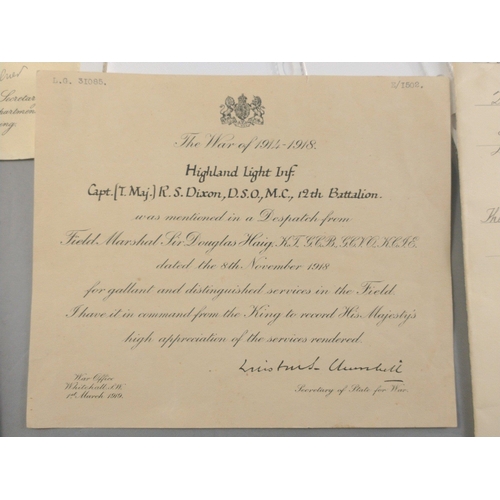 L.G. 31089. S/1502.
The War of 1914-1918.
Highland Light Inf.
Capt. (T. Maj.) R. S. Dixon, D.S.O., M.C., 12th Battalion.
was mentioned in a Despatch from
Field Marshal Sir Douglas Haig, K.T., G.C.B., G.C.V.O., K.C.I.E.
dated the 8th November 1918
for gallant and distinguished services in the Field.
I have it in command from the King to record His Majesty's
high appreciation of the services rendered.
Winston S. Churchill
War Office
Whitehall, S.W.
1st March 1919.
Secretary of State for War.
Secretar